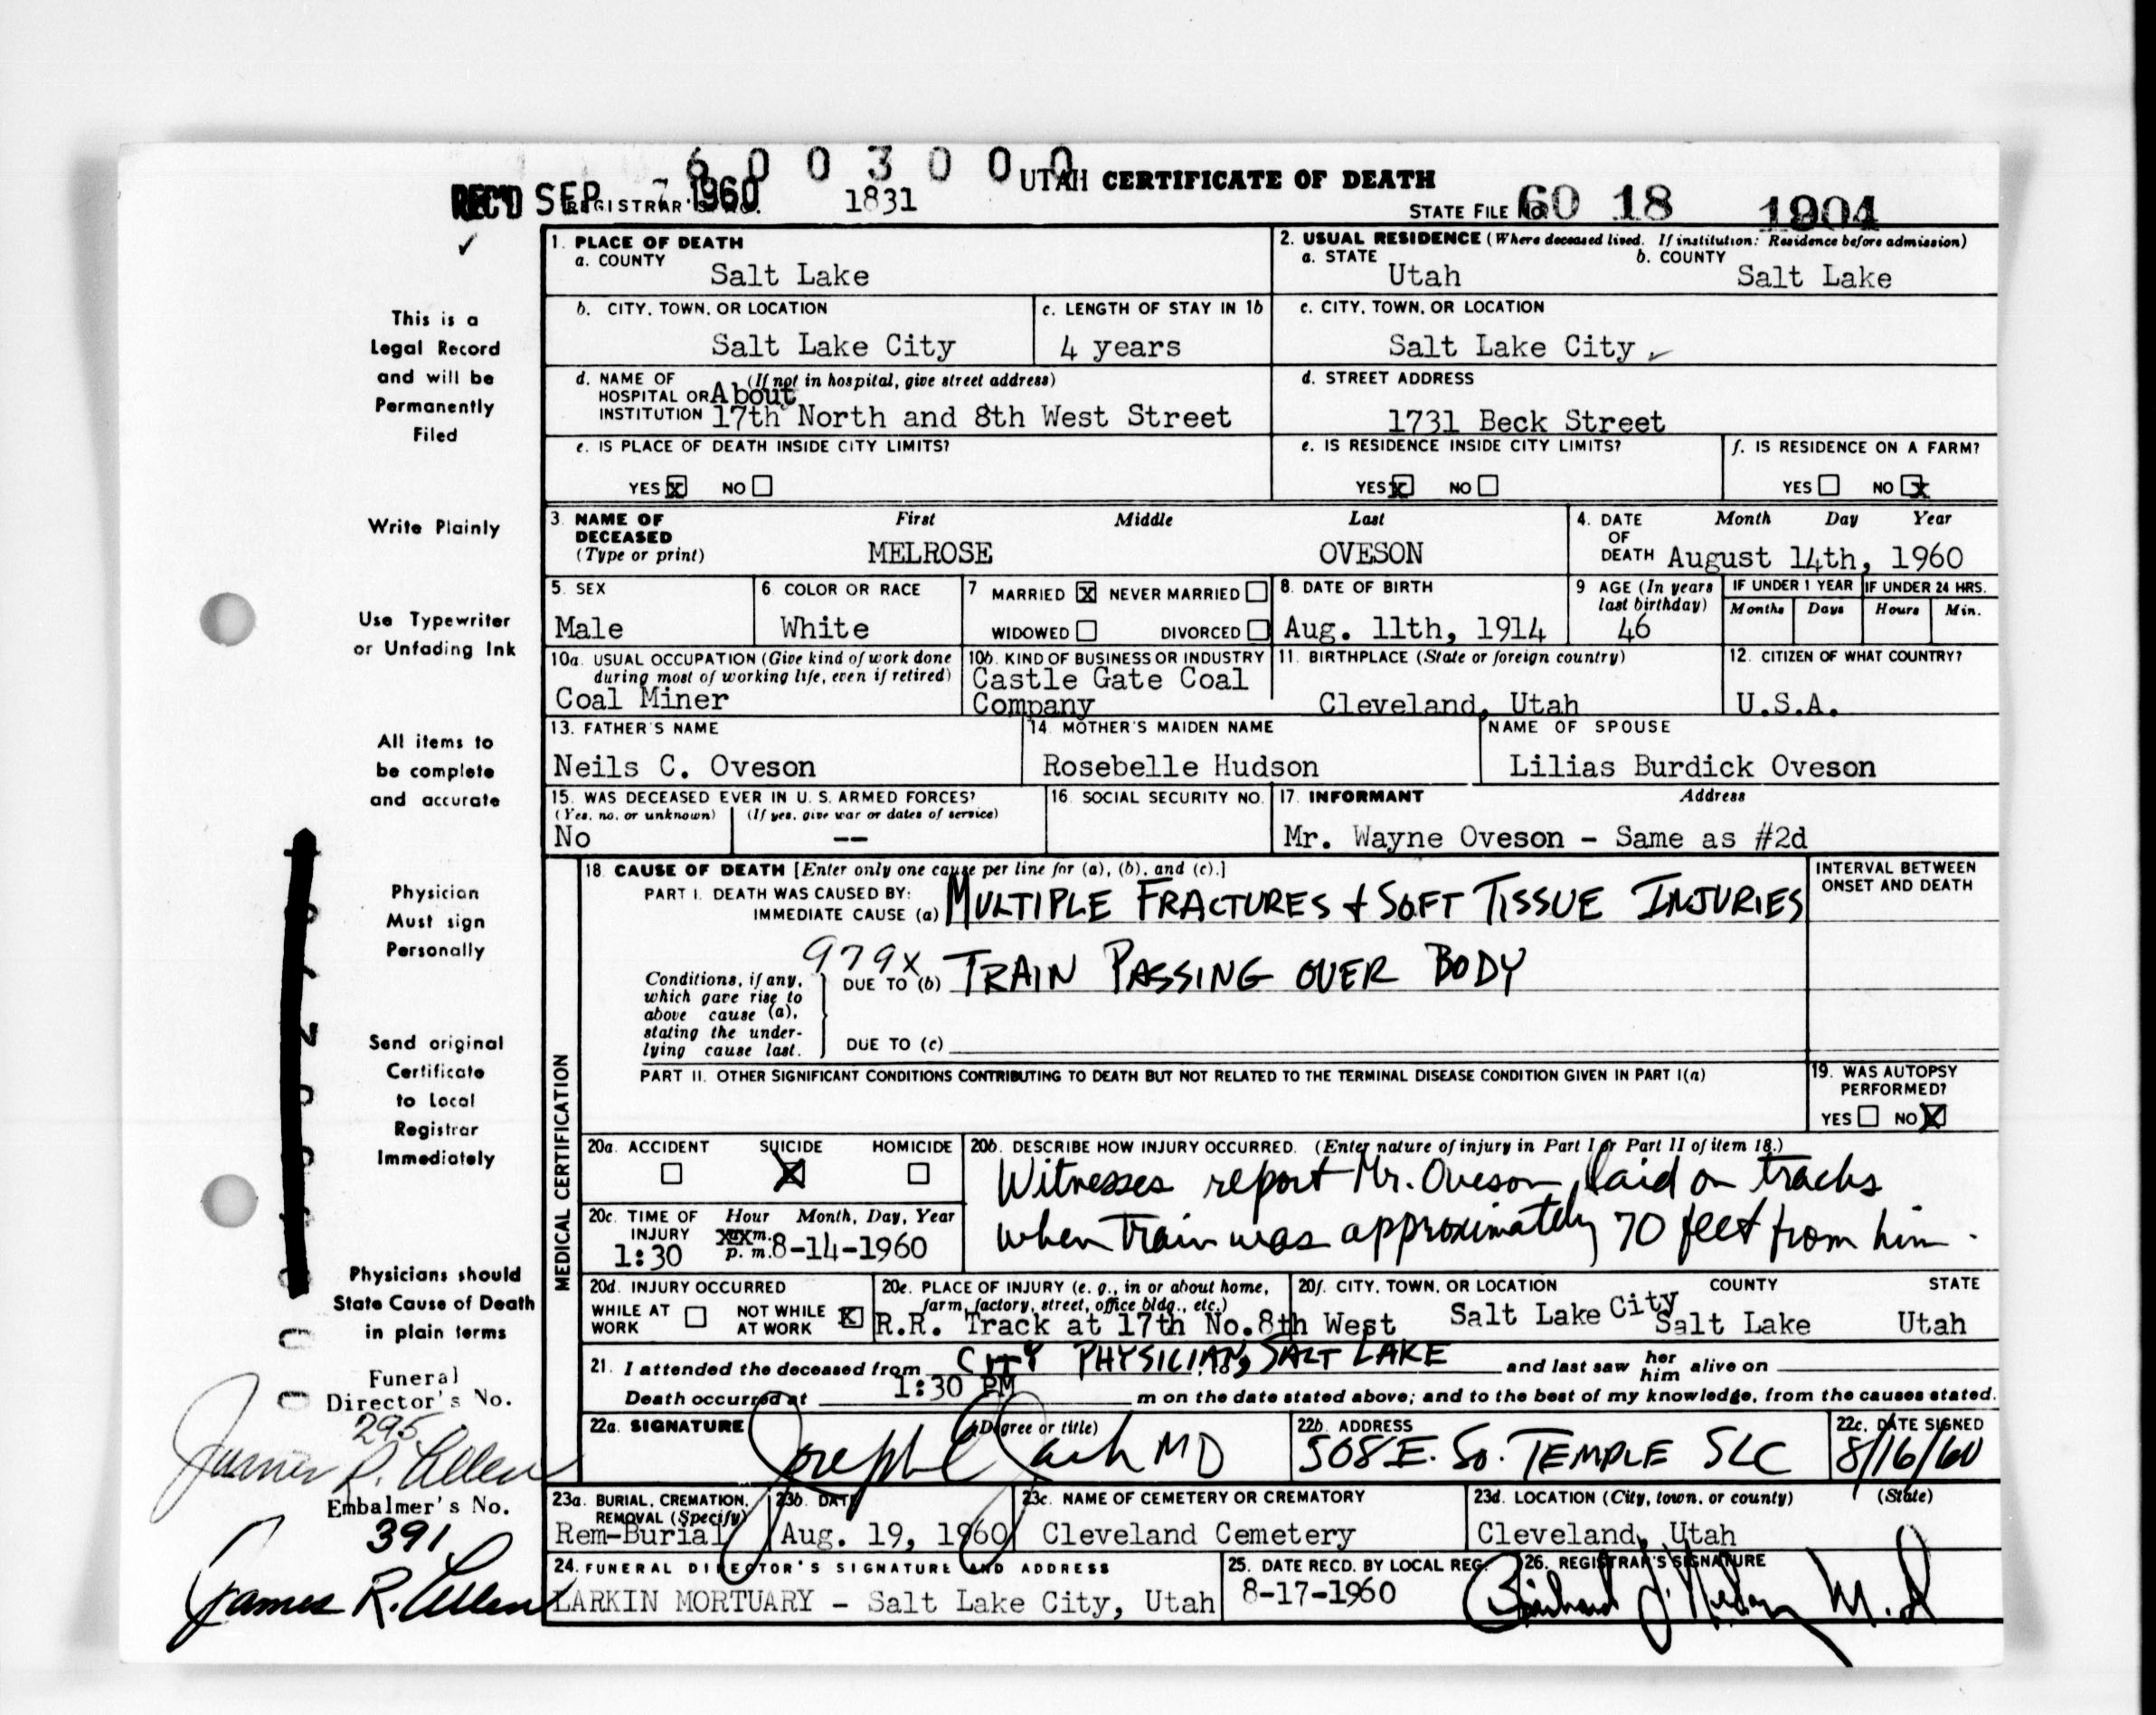 6 0 0 3 0 0 0
UTAH CERTIFICATE OF DEATH
REC'D SEP 7 1960
REGISTRAR'S NO. 1831
STATE FILE NO. 60 18 1904
✓
This is a
Legal Record
and will be
Permanently
Filed
Write Plainly
Use Typewriter
or Unfading Ink
All items to
be complete
and accurate
Physician
Must sign
Personally
Send original
Certificate
to Local
Registrar
Immediately
Physicians should
State Cause of Death
in plain terms
Funeral
Director's No.
295
James R. Allen
Embalmer's No.
391
James R. Allen
1. PLACE OF DEATH
a. COUNTY
Salt Lake
2. USUAL RESIDENCE (Where deceased lived. If institution: Residence before admission)
a. STATE
Utah
b. COUNTY
Salt Lake
b. CITY, TOWN, OR LOCATION
Salt Lake City
c. LENGTH OF STAY IN 1b
4 years
c. CITY, TOWN, OR LOCATION
Salt Lake City ✓
d. NAME OF (If not in hospital, give street address)
HOSPITAL OR About
INSTITUTION 17th North and 8th West Street
d. STREET ADDRESS
1731 Beck Street
e. IS PLACE OF DEATH INSIDE CITY LIMITS?
YES X NO
e. IS RESIDENCE INSIDE CITY LIMITS?
YES X NO
f. IS RESIDENCE ON A FARM?
YES NO X
3. NAME OF First Middle Last
DECEASED
(Type or print) MELROSE OVESON
4. DATE Month Day Year
OF
DEATH August 14th, 1960
5. SEX
Male
6. COLOR OR RACE
White
7 MARRIED X NEVER MARRIED
WIDOWED DIVORCED
8. DATE OF BIRTH
Aug. 11th, 1914
9 AGE (In years
last birthday)
46
IF UNDER 1 YEAR
Months Days
IF UNDER 24 HRS.
Hours Min.
10a. USUAL OCCUPATION (Give kind of work done
during most of working life, even if retired)
Coal Miner
10b. KIND OF BUSINESS OR INDUSTRY
Castle Gate Coal
Company
11. BIRTHPLACE (State or foreign country)
Cleveland, Utah
12. CITIZEN OF WHAT COUNTRY?
U.S.A.
13. FATHER'S NAME
Neils C. Oveson
14. MOTHER'S MAIDEN NAME
Rosebelle Hudson
NAME OF SPOUSE
Lilias Burdick Oveson
15. WAS DECEASED EVER IN U. S. ARMED FORCES?
(Yes, no, or unknown) (If yes, give war or dates of service)
No --
16. SOCIAL SECURITY NO.
17. INFORMANT Address
Mr. Wayne Oveson - Same as #2d
MEDICAL CERTIFICATION
18. CAUSE OF DEATH [Enter only one cause per line for (a), (b), and (c).]
PART I. DEATH WAS CAUSED BY:
IMMEDIATE CAUSE (a) MULTIPLE FRACTURES + SOFT TISSUE INJURIES
INTERVAL BETWEEN
ONSET AND DEATH
979X
Conditions, if any,
which gave rise to
above cause (a),
stating the under-
lying cause last.
DUE TO (b) TRAIN PASSING OVER BODY
DUE TO (c)
PART II. OTHER SIGNIFICANT CONDITIONS CONTRIBUTING TO DEATH BUT NOT RELATED TO THE TERMINAL DISEASE CONDITION GIVEN IN PART I(a)
19. WAS AUTOPSY
PERFORMED?
YES NO X
20a. ACCIDENT SUICIDE HOMICIDE
X
20b. DESCRIBE HOW INJURY OCCURRED. (Enter nature of injury in Part I or Part II of item 18.)
Witnesses report Mr. Oveson laid on tracks
when Train was approximately 70 feet from him.
20c. TIME OF Hour Month, Day, Year
INJURY
1:30 p. m. 8-14-1960
20d. INJURY OCCURRED
WHILE AT
WORK
NOT WHILE
AT WORK X
20e. PLACE OF INJURY (e. g., in or about home,
farm, factory, street, office bldg., etc.)
R.R. Track at 17th No.8th West
20f. CITY, TOWN, OR LOCATION COUNTY STATE
Salt Lake City Salt Lake Utah
21. I attended the deceased from CITY PHYSICIAN, SALT LAKE and last saw her him alive on
Death occurred at 1:30 PM m on the date stated above; and to the best of my knowledge, from the causes stated.
22a. SIGNATURE (Degree or title)
Joseph MD
22b. ADDRESS
508 E. So. TEMPLE SLC
22c. DATE SIGNED
8/16/60
23a. BURIAL, CREMATION,
REMOVAL (Specify)
Rem-Burial
23b. DATE
Aug. 19, 1960
23c. NAME OF CEMETERY OR CREMATORY
Cleveland Cemetery
23d. LOCATION (City, town, or county) (State)
Cleveland, Utah
24. FUNERAL DIRECTOR'S SIGNATURE AND ADDRESS
LARKIN MORTUARY - Salt Lake City, Utah
25. DATE RECD. BY LOCAL REG.
8-17-1960
26. REGISTRAR'S SIGNATURE
M.D.